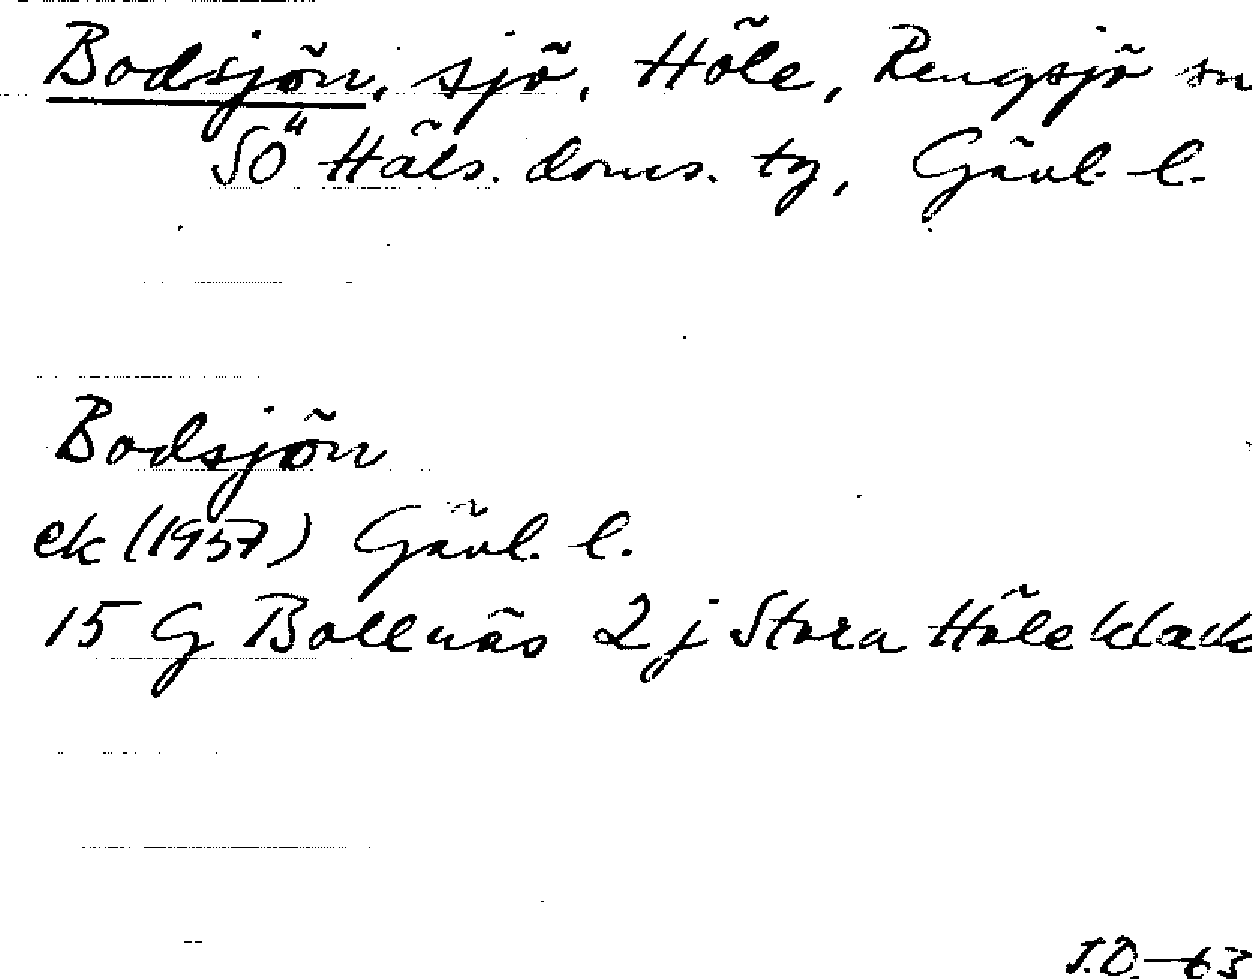 Bodsjön, sjö, Höle, Rengsjö sn
SÖ Häls. doms. tg, Gävl. l.
Bodsjön
ek (1957) Gävl. l.
15 G Bollnäs 2 j Stora Höleklack
J.Ö.-63